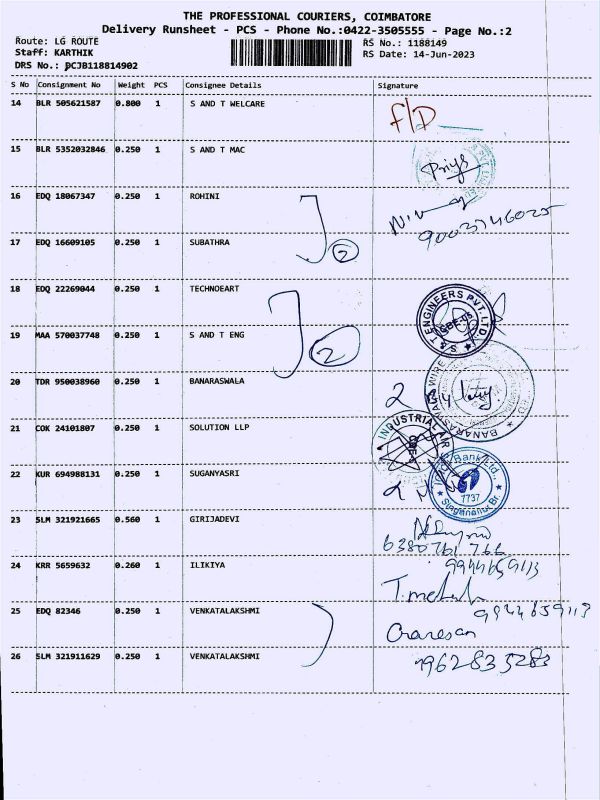 THE PROFESSIONAL COURIERS, COIMBATORE
Delivery Runsheet - PCS - Phone No.:0422-3505555 - Page No.:2
Route: LG ROUTE
Staff: KARTHIK
DRS No.: PCJB118814902
RS No.: 1188149
RS Date: 14-Jun-2023
S No Consignment No Weight PCS Consignee Details Signature
14 BLR 505621587 0.800 1 S AND T WELCARE F/D
15 BLR 5352032846 0.250 1 S AND T MAC Priya
16 EDQ 18067347 0.250 1 ROHINI
9003746025
17 EDQ 16609105 0.250 1 SUBATHRA 2
18 EDQ 22269044 0.250 1 TECHNOEART
S & T ENGINEERS PVT. LTD.
19 MAA 570037748 0.250 1 S AND T ENG 2
20 TDR 950038960 0.250 1 BANARASWALA 2
BANARASWALA WIRE
21 COK 24101807 0.250 1 SOLUTION LLP
INDUSTRIAL AIR
22 KUR 694988131 0.250 1 SUGANYASRI 2
Bank Ltd.,
7737
23 SLM 321921665 0.560 1 GIRIJADEVI
6380761766
24 KRR 5659632 0.260 1 ILIKIYA 9944659113
25 EDQ 82346 0.250 1 VENKATALAKSHMI 9944659113
26 SLM 321911629 0.250 1 VENKATALAKSHMI 7962835283